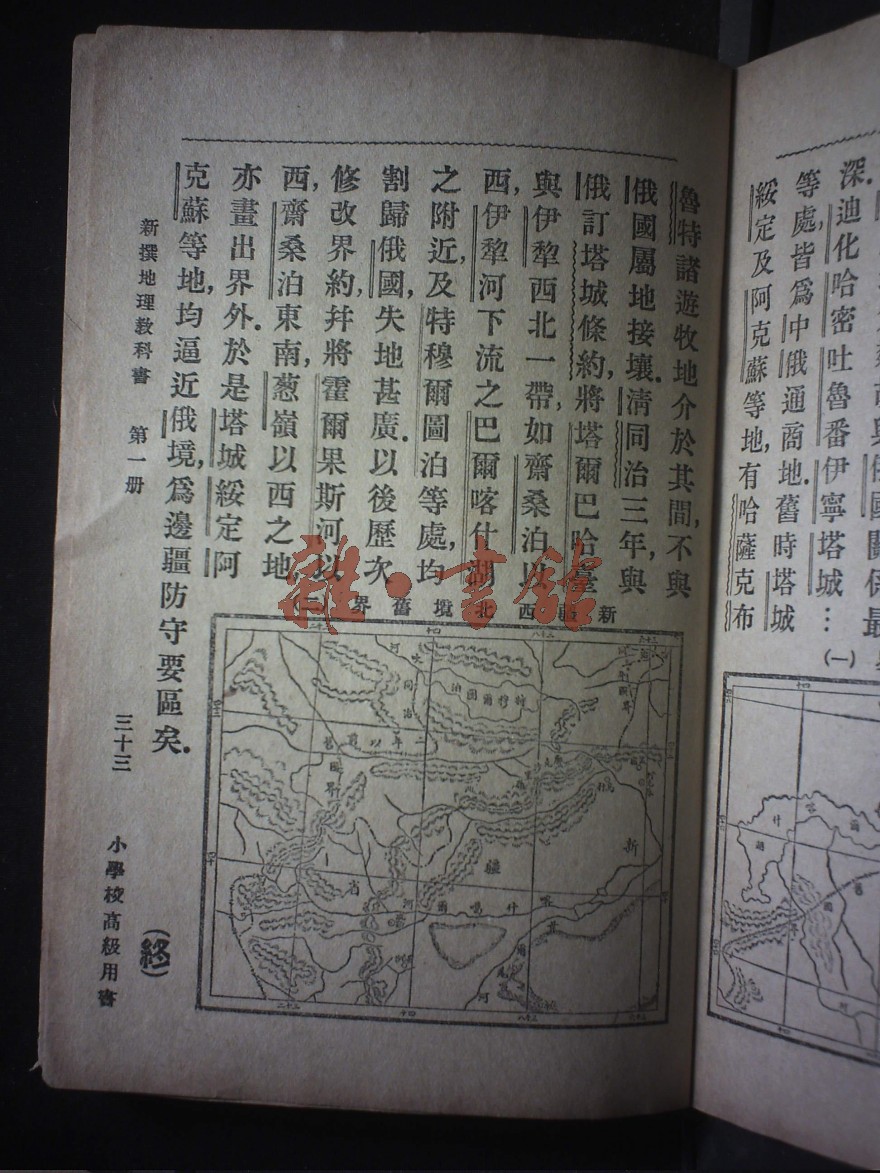 深.迪化哈密吐魯番伊寧塔城…
等處,皆爲中俄通商地.舊時塔城
綏定及阿克蘇等地,有哈薩克布
(一)
魯特諸遊牧地介於其間,不與
俄國屬地接壤.清同治三年,與
俄訂塔城條約,將塔爾巴哈臺
與伊犂西北一帶,如齋桑泊以
西,伊犂河下流之巴爾喀什湖
之附近,及特穆爾圖泊等處,均
割歸俄國,失地甚廣.以後歷次
修改界約,幷將霍爾果斯河以
西,齋桑泊東南,葱嶺以西之地,
亦畫出界外.於是塔城綏定阿
克蘇等地,均逼近俄境,爲邊疆防守要區矣.
(終)
新疆西北境舊界(二)
新
疆
省
特穆爾圖泊
喀什噶爾河
新撰地理教科書 第一册 三十三 小學校高級用書
雜·書館